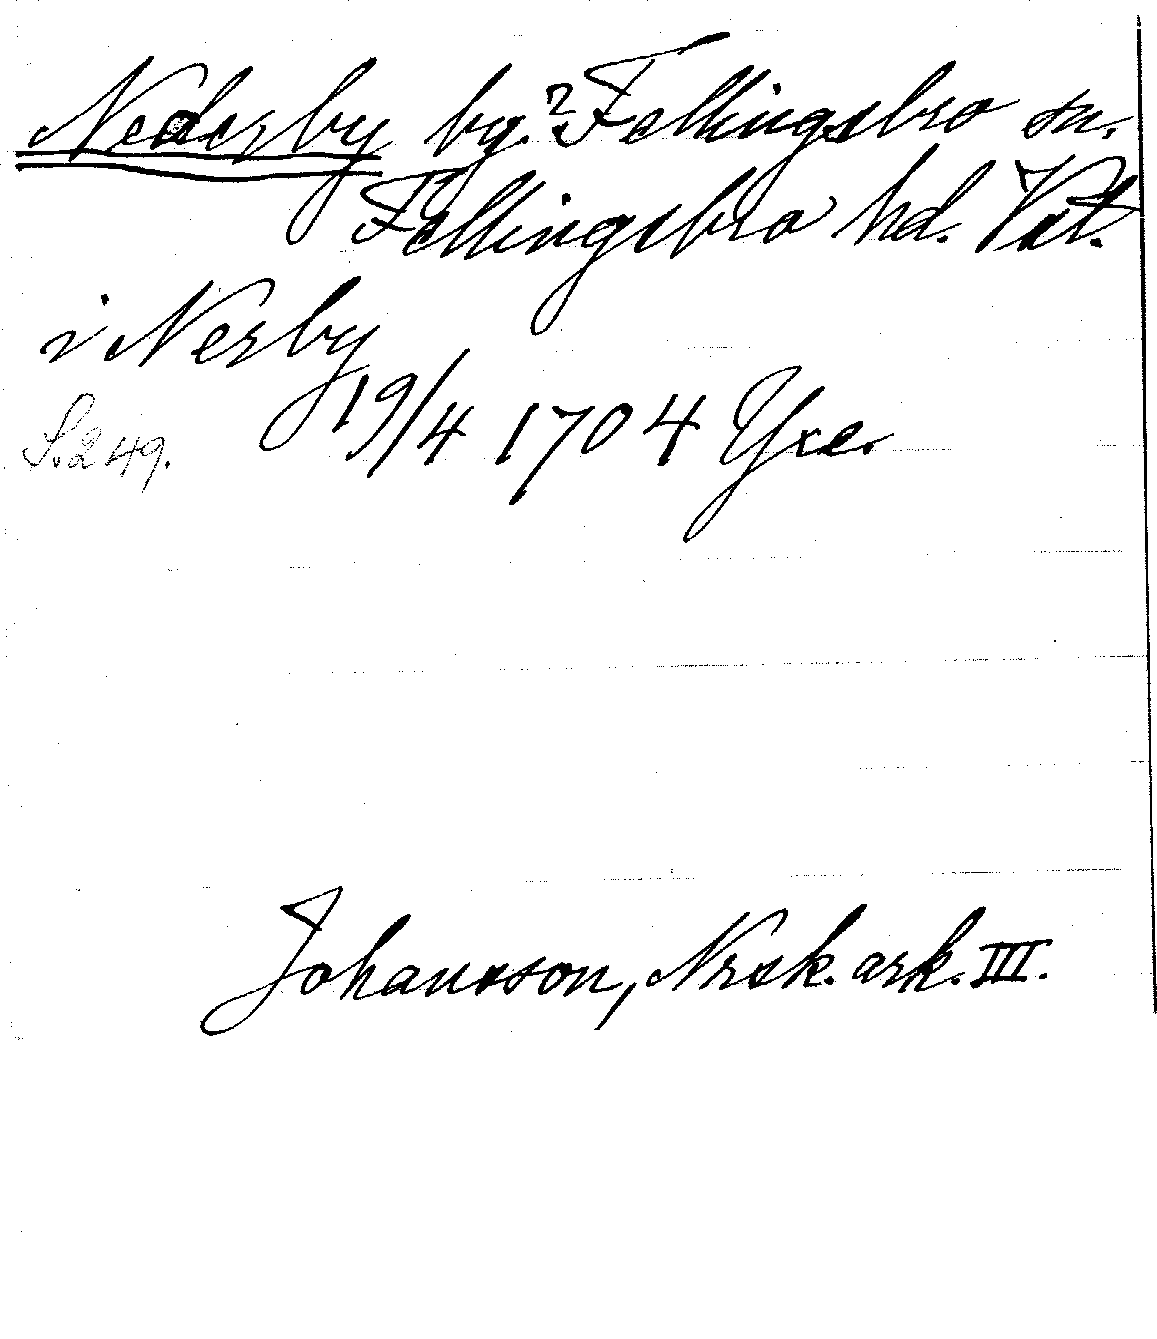 Nederby by.? Fellingsbro sn.
Fellingsbro hd. Vstl.
i Nerby
19/4 1704 Yxe.
S. 249.
Johansson, Nrsk. ark. III.